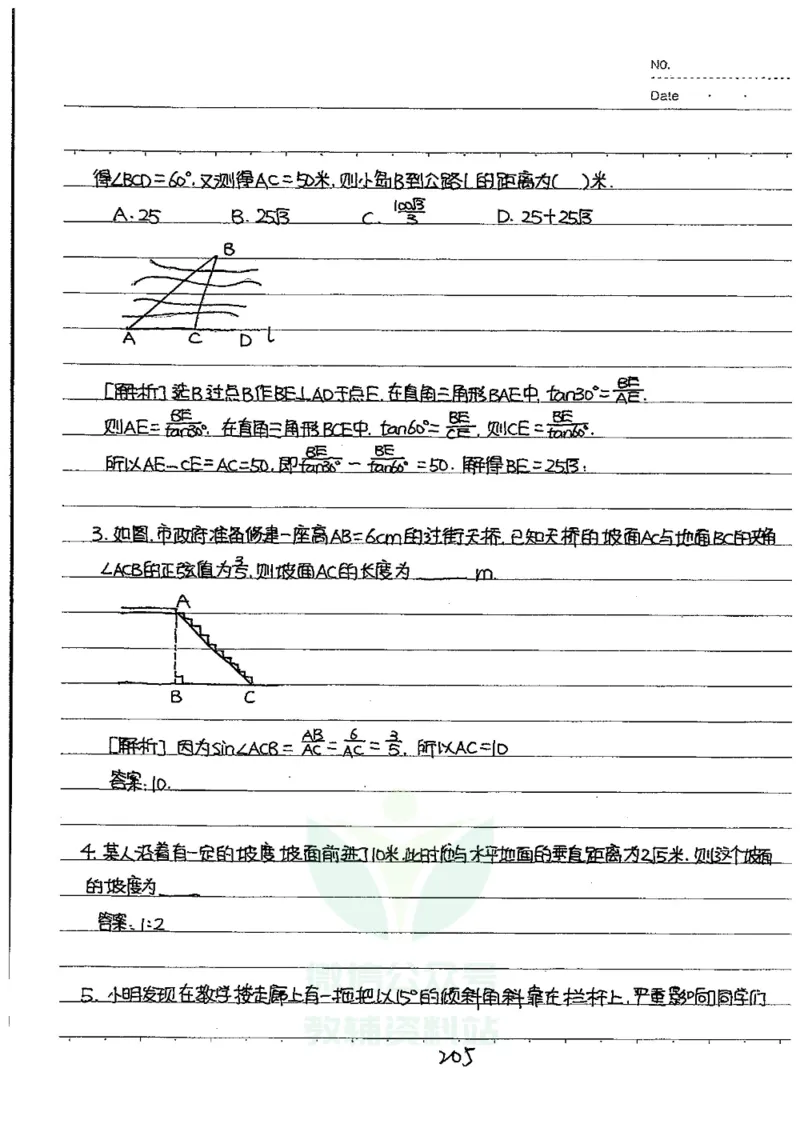 NO.
Date
得∠BCD=60°,又测得AC=50米,则小岛B到公路l的距离为( )米.
A.25 B.25√3 C.100√3/3 D.25+25√3
B
A C D l
[解析]选B过点B作BE⊥AD于点E,在直角三角形BAE中,tan30°=BE/AE.
则AE=BE/tan30°,在直角三角形BCE中,tan60°=BE/CE,则CE=BE/tan60°.
所以AE-CE=AC=50,即BE/tan30°-BE/tan60°=50.解得BE=25√3;
3.如图,市政府准备修建一座高AB=6cm的过街天桥,已知天桥的坡面AC与地面BC的夹角
∠ACB的正弦值为3/5,则坡面AC的长度为____m.
A
B C
[解析]因为sin∠ACB=AB/AC=6/AC=3/5,所以AC=10
答案:10.
4.某人沿着有一定的坡度坡面前进了10米,此时他与水平地面的垂直距离为2√5米,则这个坡面
的坡度为____
答案:1:2
微信公众号
5.小明发现在教学楼走廊上有一拖把以15°的倾斜角斜靠在栏杆上,严重影响同学们
教辅资料站
205